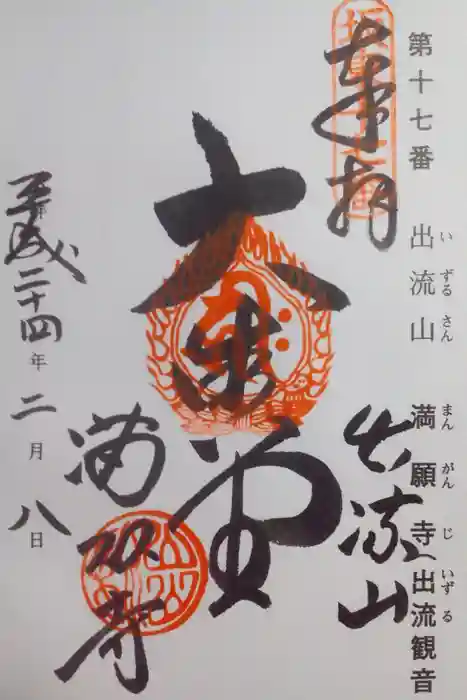 第十七番 出流山 満願寺(出流観音
いずるさん まんがんじ いずる
奉拝
出流山
大御堂
満願寺
平成二十四年二月八日